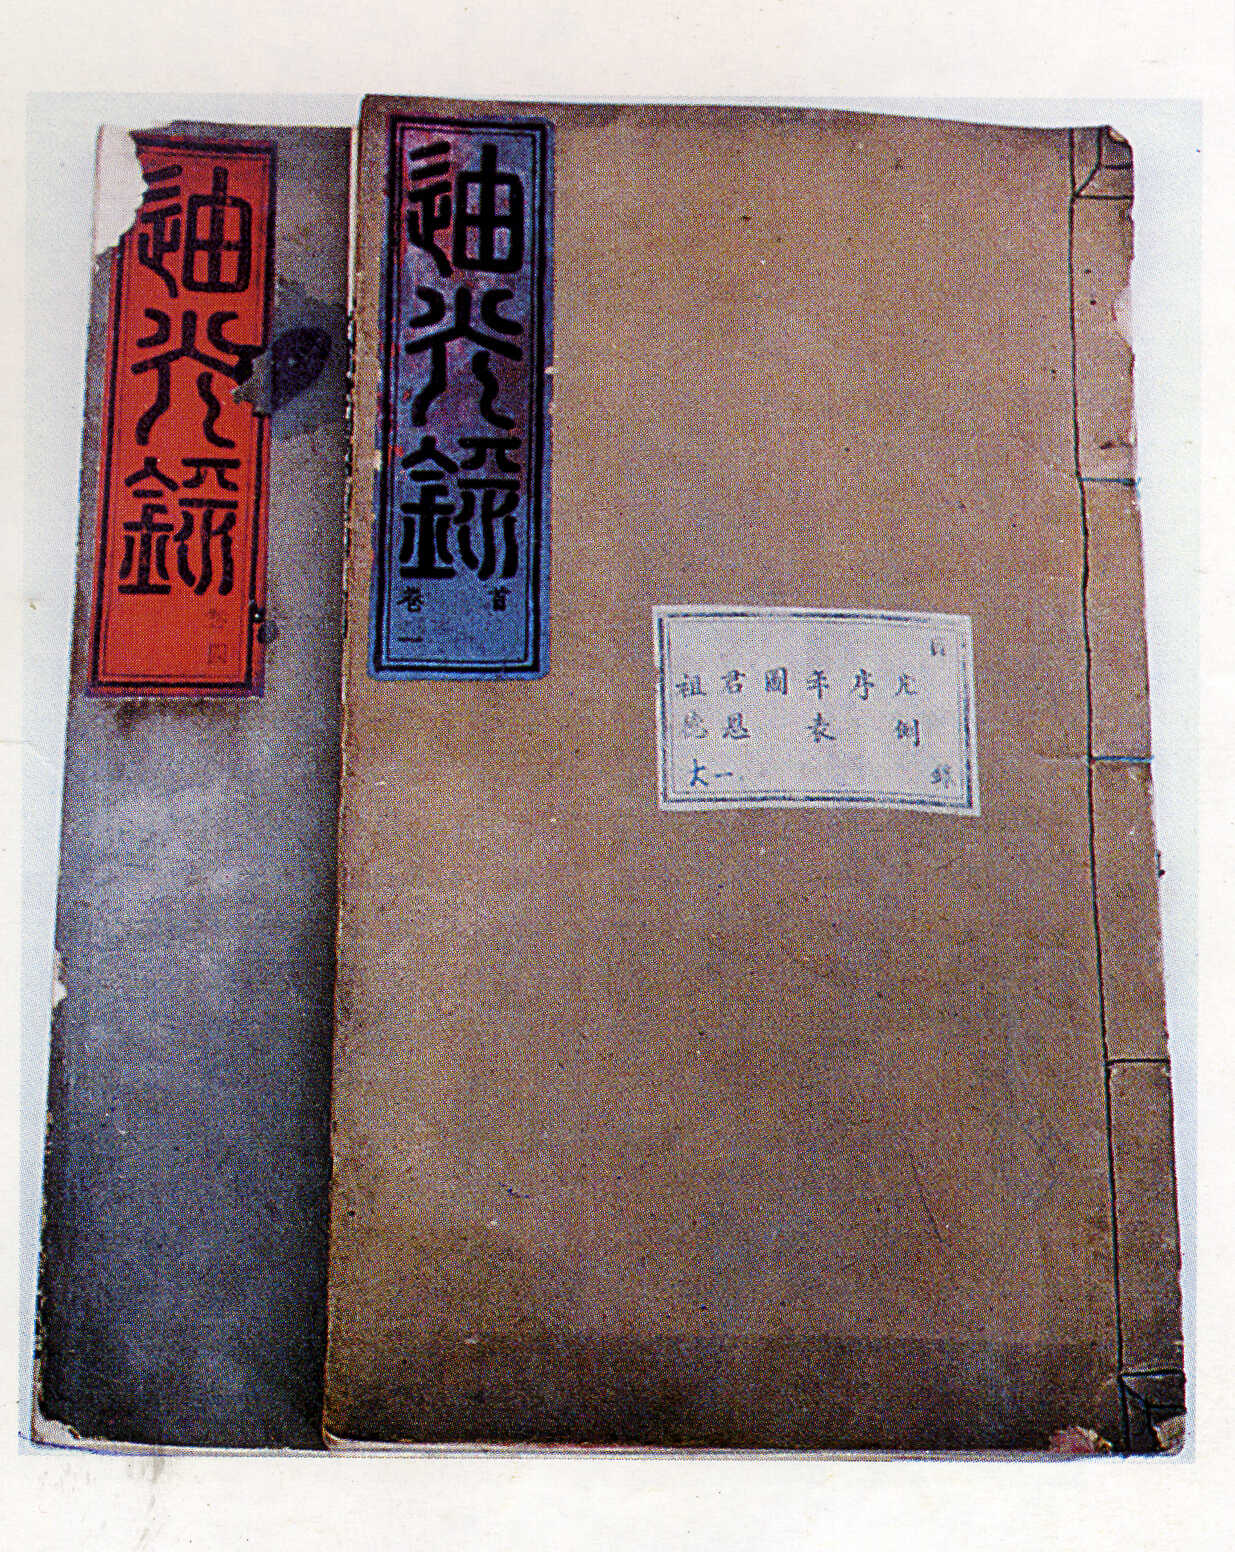 迪光錄
首
卷一
目錄
凡例
序
年表
圖
君恩一
祖德大
迪光錄